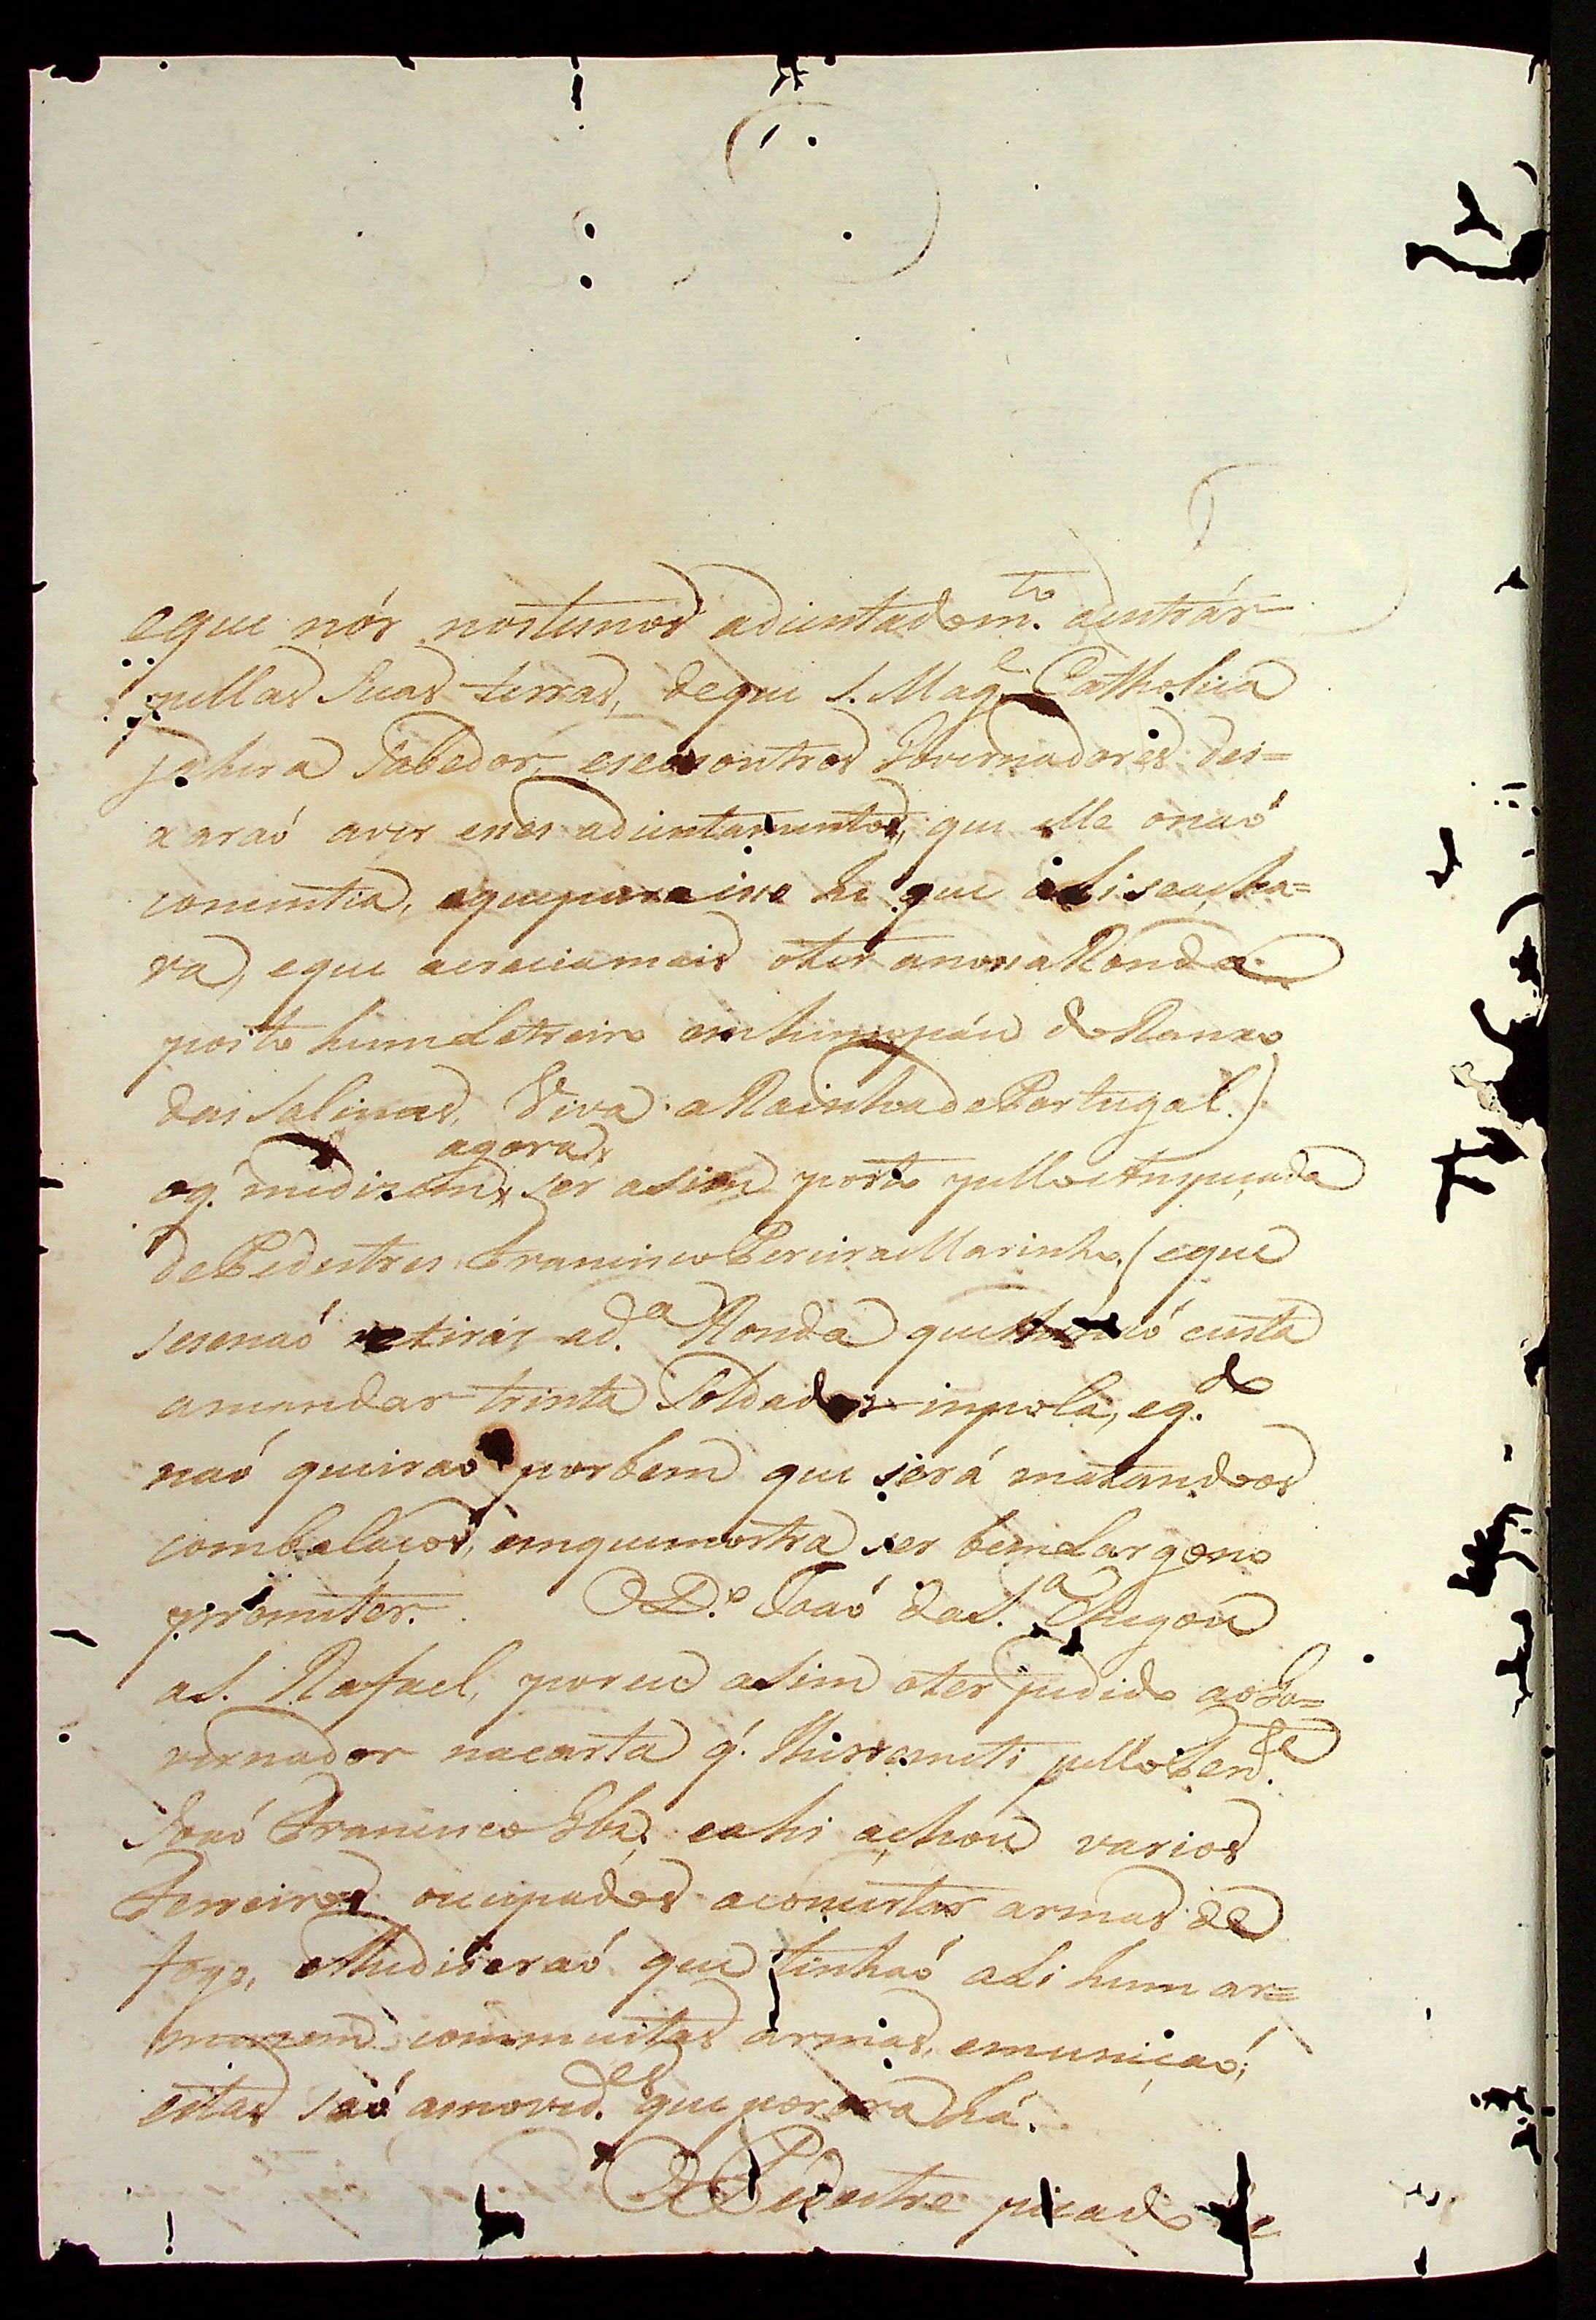 eque nós nostemos adientadom.to aentrár
pellas Suas terras, deque S. Mag.e Catholica
jahera Sabedor, eseos outros Governadores dei=
xaraó aver eses adientamentos, que elle onaó
consentia, equepara iso he que ali seacha=
va, eque acrecia mais oter anosa Ronda
posto hum Letreiro em hum páu do Rancho
das Salinas, Viva a Rainha de Portugal.)
agora
oq. medizem, ser asim posto pello Anspeçada
de Pedestres Francisco Pereira Marinho (eque
sesenaó retirár ad.a Ronda que lhenaó custa
amandar trinta Soldados inpola, eq.do
naó queiraó por bem que será matandoos
combalaços, emquemostra ser bem Largono
prometer. O D.o Joaó da S.a Chegou
a S. Rafael, por eu asim oter pedido ao Go=
vernador nacarta q. lhe remeti pello Ten.te
Joaó Francisco, eahi achou varios
Ferreiros ocupados aconcertar armas de
fogo, elhediseraó que tinhaó ali hum ar=
mazem commuitas armas, emuniçaó;
estas saó asnovid.es que por ora há.
O Pedestre picado